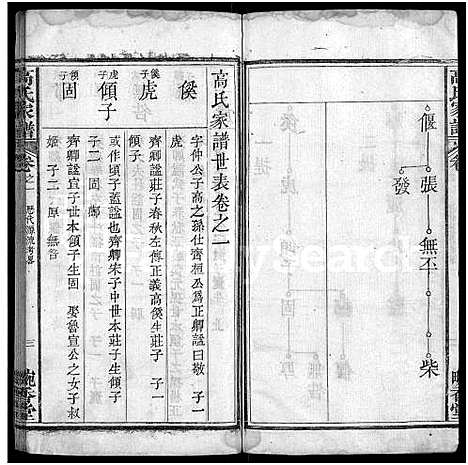 高氏家譜
偃 張 無丕 柴
發
高氏家譜世表卷之二
傒
字仲公子高之孫仕齊桓公爲正卿諡曰敬 子一
虎
傒子
虎
齊卿諡莊子春秋左傳正義高傒生莊子 子一
虎子
傾子
或作頃子蓋諡也齊卿朱子中世本莊子生傾子
子二 固
傾子
固
齊卿諡宣子世本傾子生固 娶魯宣公之女子叔
姬 子二 厚 無咎
高氏家譜
卷之一
歷代源流考畧
三